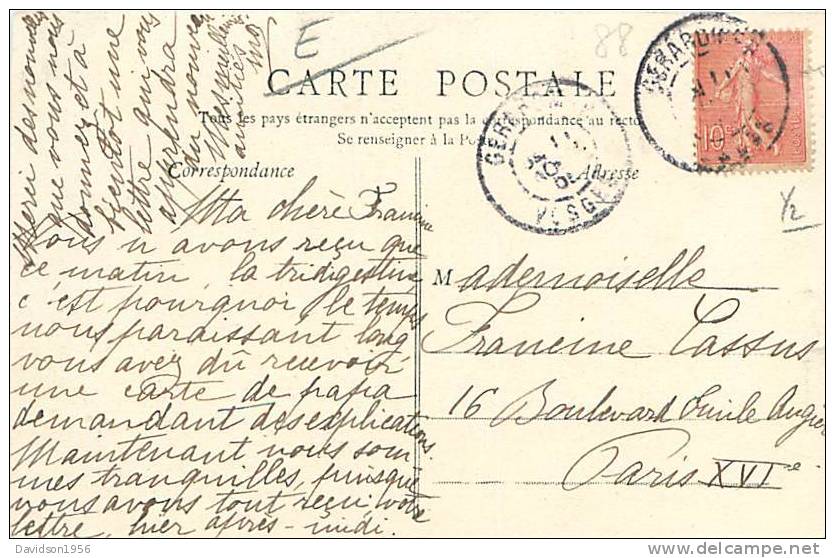 E
88
CARTE POSTALE
Tous les pays étrangers n'acceptent pas la correspondance au recto
Se renseigner à la Po
Correspondance
Adresse
GERARDMER
VOSGES
GERARDMER
10c
POSTES
1/2
Ma chère Francine
Nous n'avons reçu que
ce matin, la tridigestine
c'est pourquoi le temps
nous paraissant long
vous avez dû recevoir
une carte de papa
demandant des explications.
Maintenant nous som
mes tranquilles, puisque
nous avons tout reçu, votre
lettre, hier après-midi.
Merci des nouvelles
que vous nous
donnez et à
bientôt une
lettre qui vous
apprendra
du nouveau
Mes meilleures
amitiés
Mademoiselle
Francine Cassus
16 Boulevard Emile Augier
Paris XVIe
Davidson1956
delcampe.net